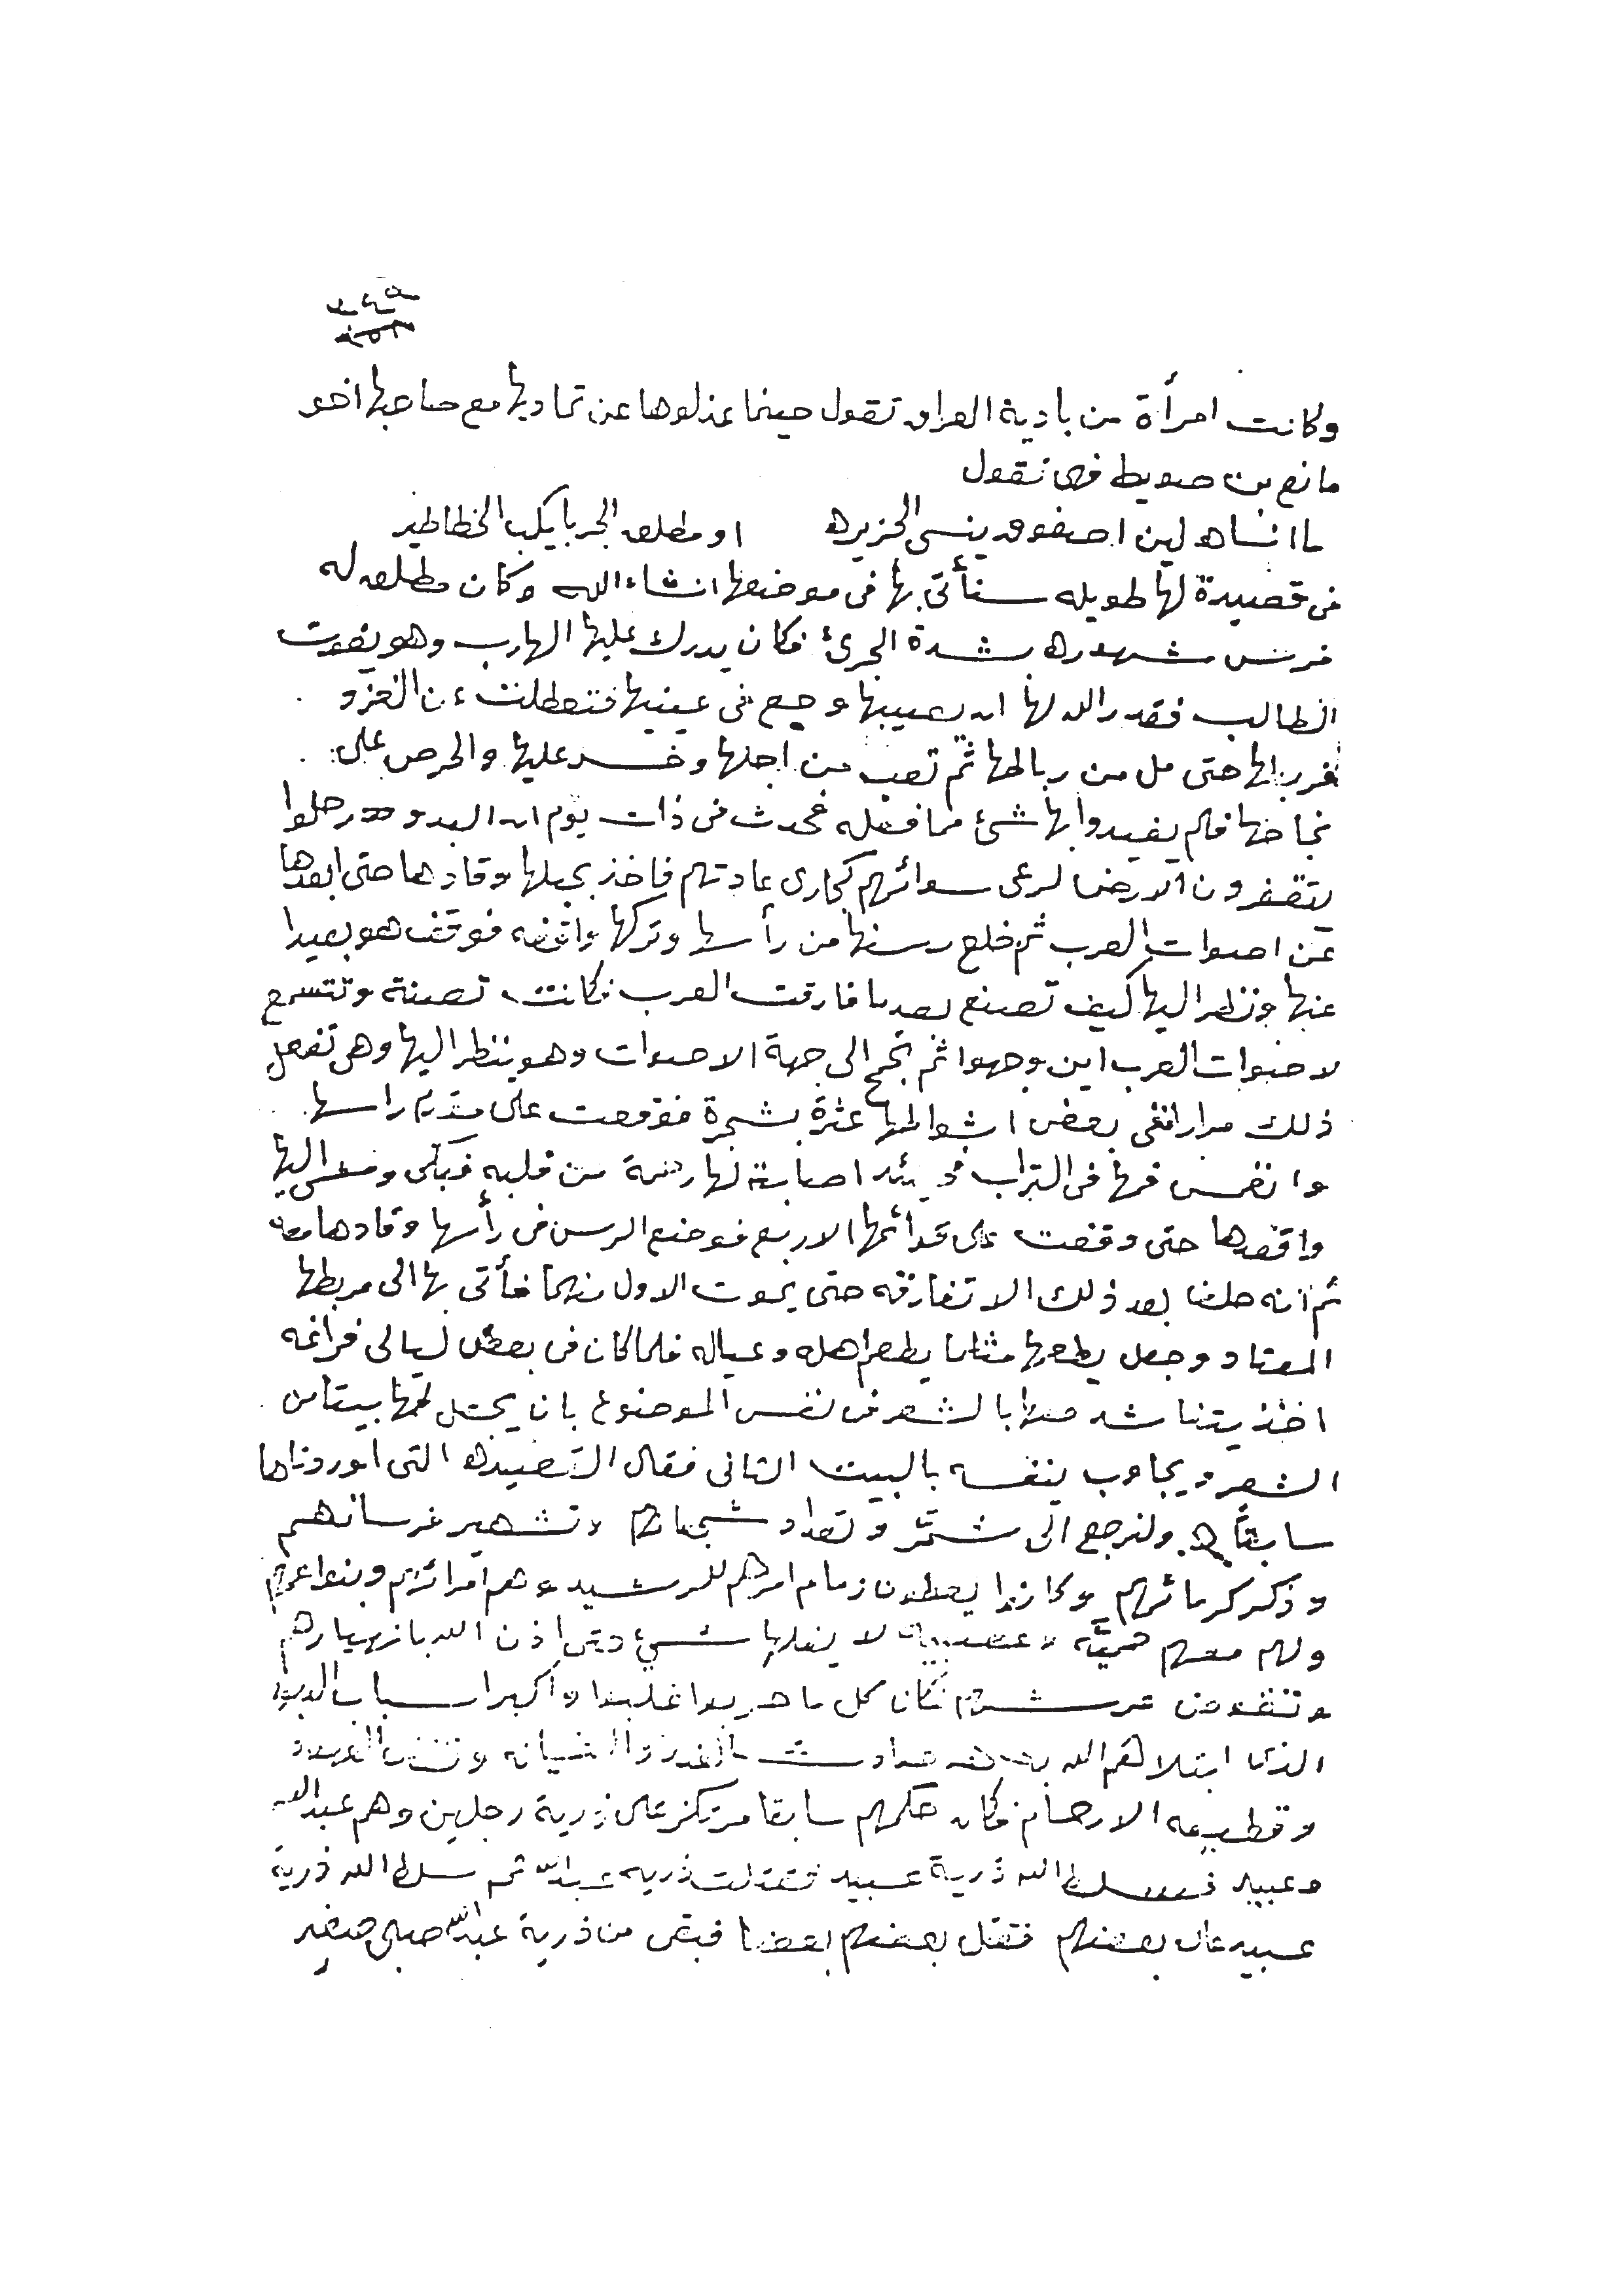 وكانت امرأة من بادية العراق تقول حينما عذلوها عن تماديها مع صاحبها اخو
مانع بن صويط فهى تقول
ما انساه لين اصفوق ينسى الجزيره او مطلق الجربا يكب الخطاطير
فى قصيدة لها طويله سنأتى بها فى موضعها انشاء الله وكان مطلق له
فرس شهوره بشدة الجرئ فكان يدرك عليها الهارب وهو يفوت
الطالب فقدر الله لها ان يصيبها وجع فى عينيها فتعطلت عن الغزو
حتى مل من ربالها ثم تعب من اجلها وخسر عليها والحرص على
فلم يفيدوا بها شئ مما فعله فحدث فى ذات يوم ان البدو رحلوا
يتقفرون الارض لرعى سوائرهم كجارى عادتهم فاخذ بحبلها وقادها حتى ابعدها
عن اصوات العرب ثم خلع رسنها من رأسها وتركها واقفه فوقف هو بعيدا
عنها ونظر اليها كيف تصنع بعدما فارقت العرب فكانت تصنة وتتسمع
لاصوات العرب اين وجهوا ثم تجمح الى جهة الاصوات وهو ينظر اليها وهى تفعل
ذلك مرارا ففى بعض اشواطها عثرة بشجرة فوقعت على مقدم راسها
وانغمس فمها فى التراب اصابته لها رحمة من قلبه فبكى ومشى اليها
واقعدها حتى وقفت على قوائمها الاربع فوضع الرسن فى رأسها وقادها معه
ثم انه حلف بعد ذلك الا تفارقه حتى يموت الاول منهما فأتى بها الى مربطها
المعتاد وجعل يطعمها مثلما يطعم اهله وعياله فلما كان فى بعض ليالى فراغه
اخذ يتناشد معها بالشعر فى نفس الموضوع بان يجعل لها بيتا من
الشعر ويجاوب بنفسه بالبيت الثانى فقال القصيده التى اوردناها
سابقاً ولنرجع الى شمّر وتعداد شجعانهم وتشهير فرسانهم
وذكر كرمائهم وكانوا يعطون زمام امرهم للرشيد وهم امرائهم وبنوا عمهم
ولهم معهم حميّه وعصبيه لا يفلها شئ حتى اذن الله بانهيارهم
وتقوض عرشهم فكان كل ما حربوا غلبوا واكبر اسباب
الذى ابتلاهم الله به حوادث الغدر والخيانه ونقض العهود
وقطيعه الارحام فكان حكمهم سابقا مرتكز على ذرية رجلين وهم عبدالله
وعبيد فسلط الله ذرية عبيد فقتلت ذريه عبدالله ثم سلط الله ذرية
عبيد على بعضهم فقتل بعضهم بعضا فبقى من ذرية عبدالله صبى صغير